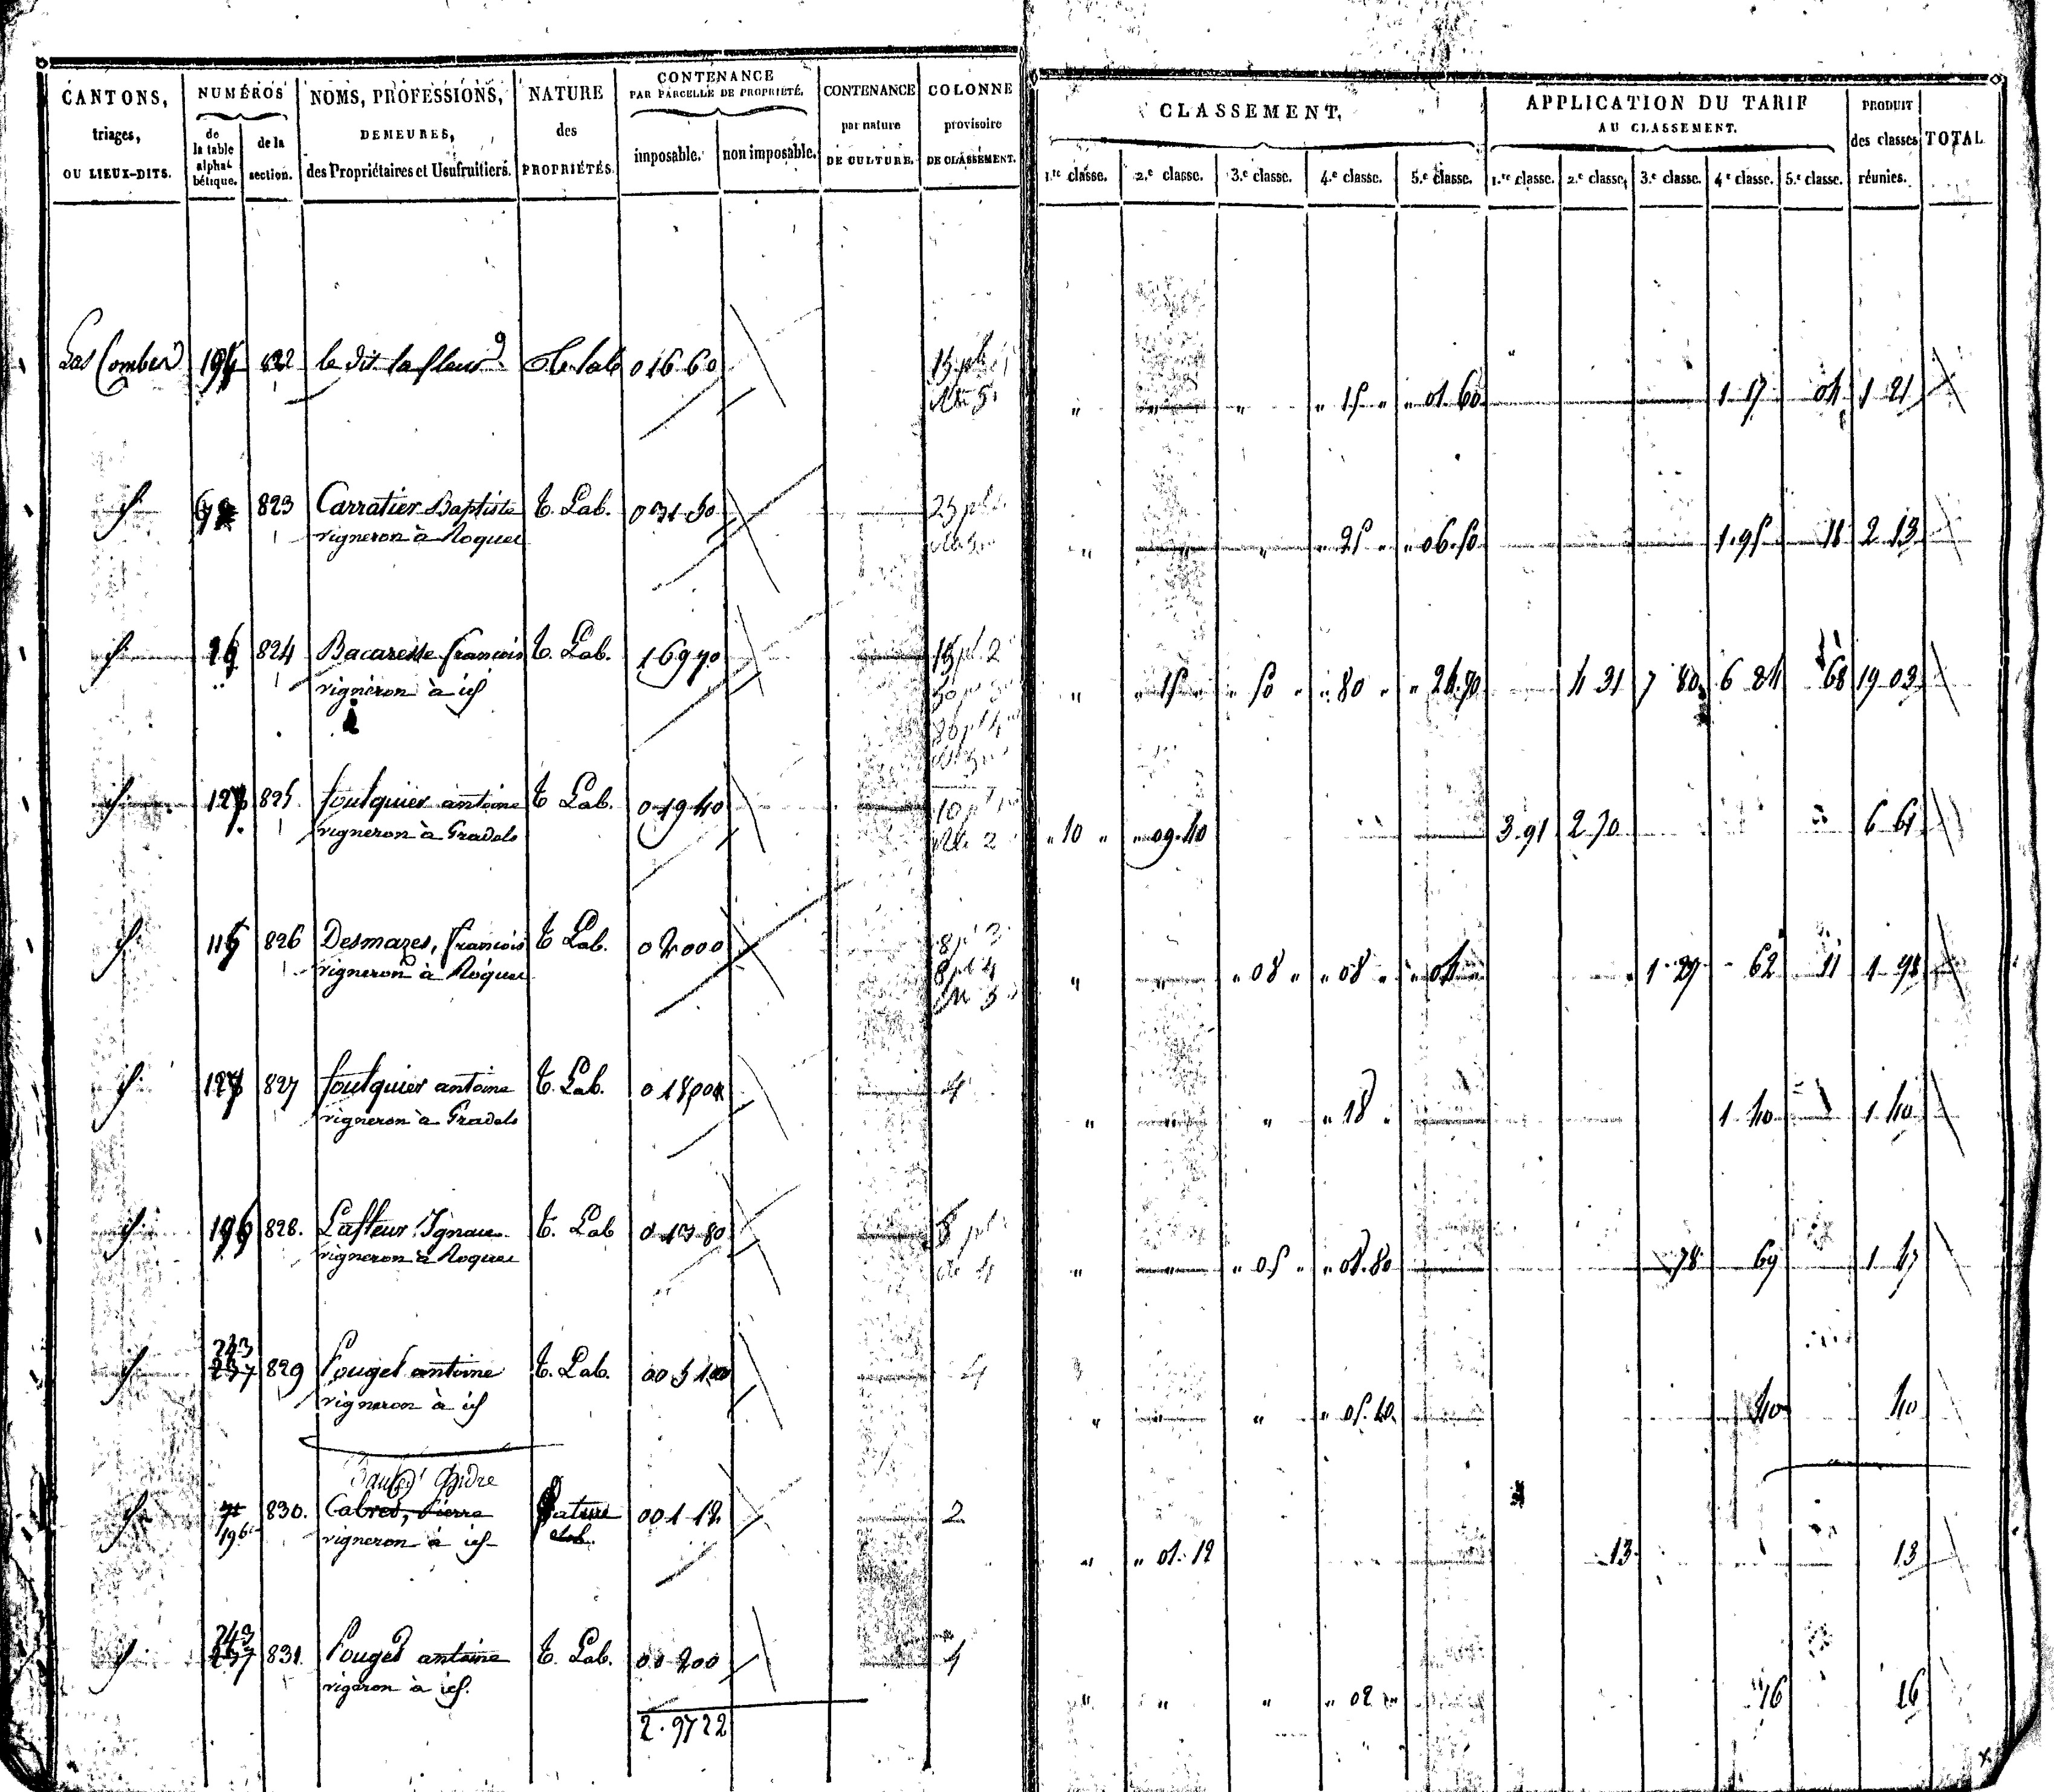 CANTONS, triages, OU LIEUX-DITS. | NUMÉROS de la table alphabétique. | de la section. | NOMS, PROFESSIONS, DEMEURES, des Propriétaires et Usufruitiers. | NATURE des PROPRIÉTÉS. | CONTENANCE PAR PARCELLE DE PROPRIÉTÉ. imposable. | non imposable. | CONTENANCE par nature DE CULTURE. | COLONNE provisoire DE CLASSEMENT. | CLASSEMENT. 1.re classe. | 2.e classe. | 3.e classe. | 4.e classe. | 5.e classe. | APPLICATION DU TARIF AU CLASSEMENT. 1.re classe. | 2.e classe. | 3.e classe. | 4.e classe. | 5.e classe. | PRODUIT des classes réunies. | TOTAL
Las Combes 822 le dit lafleur 0 16 60 " " " " 15 " " 01 60 1 17 04 1 21
823 Carratier Baptiste t. Lab. 0 31 50 " " " " 25 " " 06.50 1.95 18 2 13
vigneron à Roquer
824 Bacaresse françois t. Lab. 1 69 70 " " 15 " " 50 " " 80 " " 24.70 4 31 7 80 6 24 68 19 03
vigneron à id
127 825 foulquier antoine t. Lab. 0 19 40 " 10 " " 09.40 3.91 2.70 6 61
vigneron à Gradels
826 Desmazes, françois t. Lab. 0 20 00 " " " 08 " " 08 " " 04 1.29 62 11
vigneron à Roquer
127 827 foulquier antoine t. Lab. 0 18 00 4 " " " " 18 " 1.40 1.40
vigneron à Gradels
196 828. Lafleur Ignace t. Lab 0 13 80 " " " 05 " " 08.80 78 69 1 47
vigneron à Roquer
243
237 829 Pouget antoine t. Lab. 00 5 10 4 " " " " 05.10 40 40
vigneron à id
830. Cabres, Pierre Pature 00 1 12 2 " " 01.12 13 13
196 vigneron à id
243
237 831. Pouget antoine t. Lab. 00 2 00 4 " " " " 02 " 16 16
vigneron à id.
2.9722